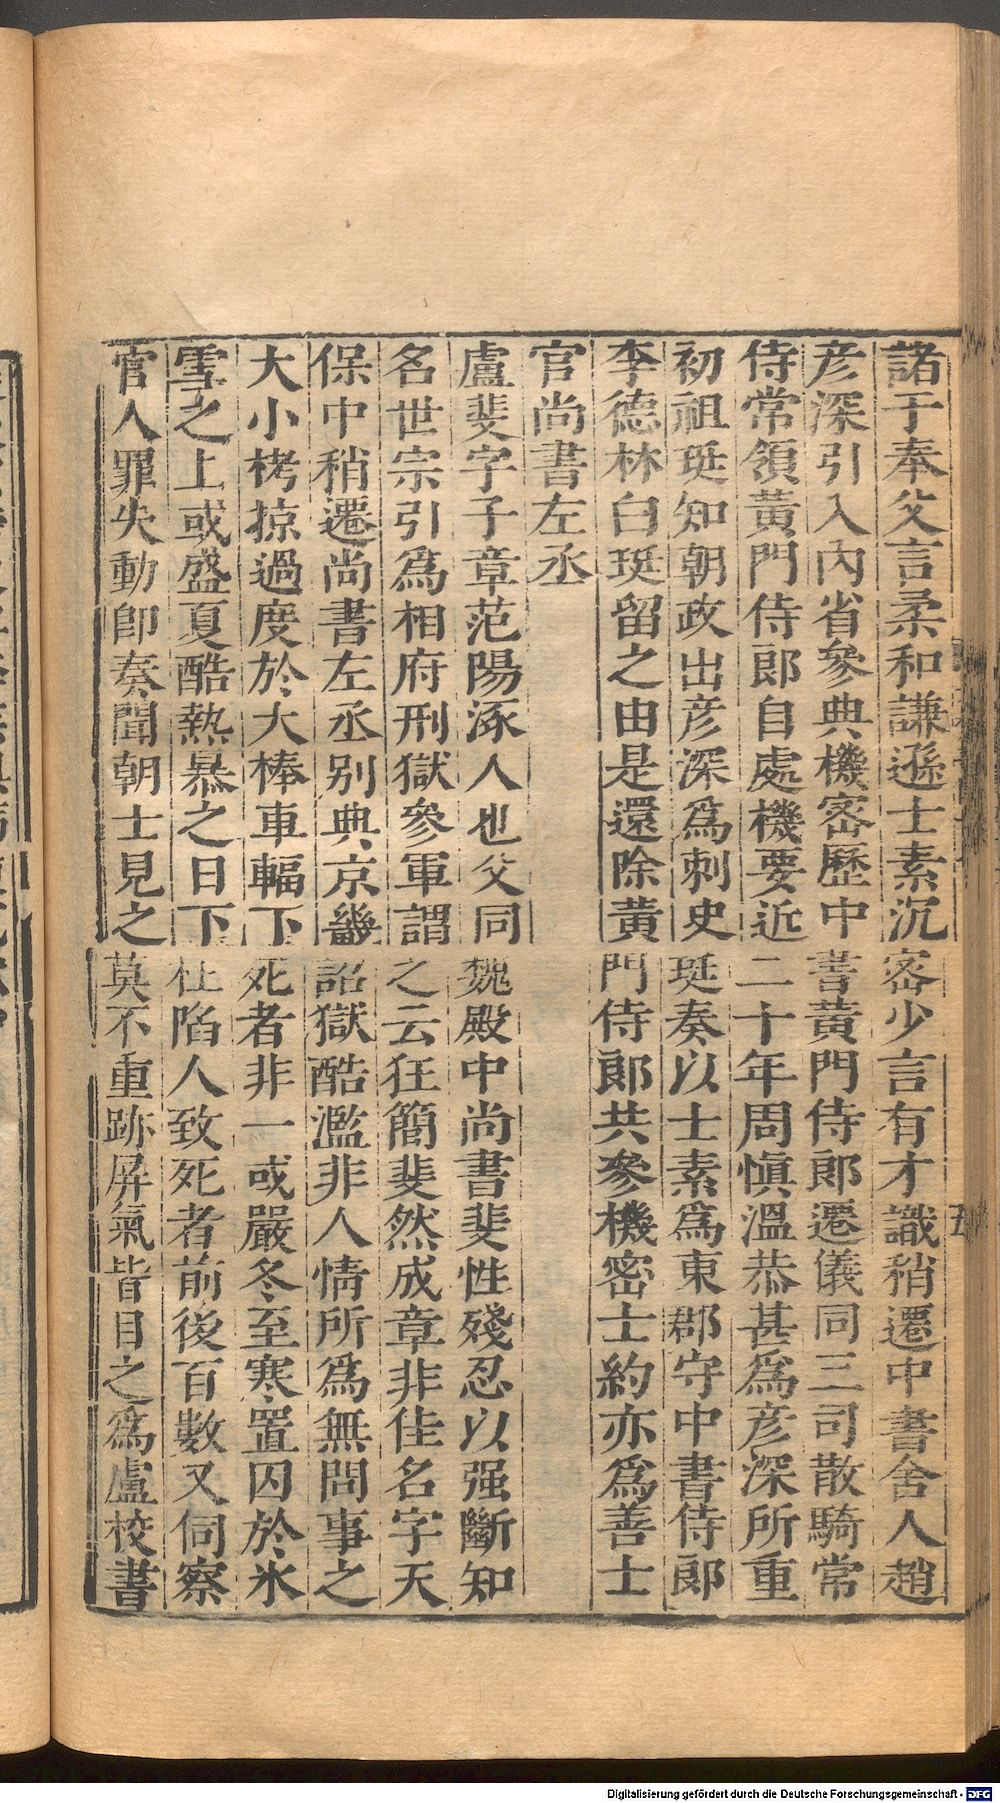 諸于奉父言柔和謙遜士素沉密少言有才識稍遷中書舍人趙
彦深引入內省參典機密歷中書黃門侍郎遷儀同三司散騎常
侍常領黃門侍郎自處機要近二十年周慎溫恭甚爲彦深所重
初祖珽知朝政出彦深爲刺史珽奏以士素爲東郡守中書侍郎
李德林白珽留之由是還除黃門侍郎共參機密士約亦爲善士
官尚書左丞
盧斐字子章范陽涿人也父同魏殿中尚書斐性殘忍以强斷知
名世宗引爲相府刑獄參軍謂之云狂簡斐然成章非佳名字天
保中稍遷尚書左丞别典京畿詔獄酷濫非人情所爲無問事之
大小栲掠過度於大棒車輻下死者非一或嚴冬至寒置囚於氷
雪之上或盛夏酷熱暴之日下枉陷人致死者前後百數又伺察
官人罪失動卽奏聞朝士見之莫不重跡屏氣皆目之爲盧校書
五
Digitalisierung gefördert durch die Deutsche Forschungsgemeinschaft - DFG